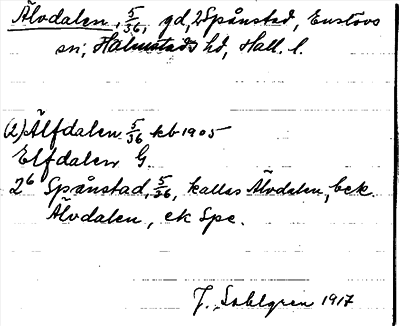 Älvdalen, 5/36, gd, 2 Spånstad, Enslövs
sn, Halmstads hd, Hall. l.
(2) Älfdalen 5/36 kb 1905
Elfdalen G
2⁶ Spånstad, 5/36, kallas Älvdalen, bek.
Älvdalen, ek Spe.
J. Sahlgren 1917